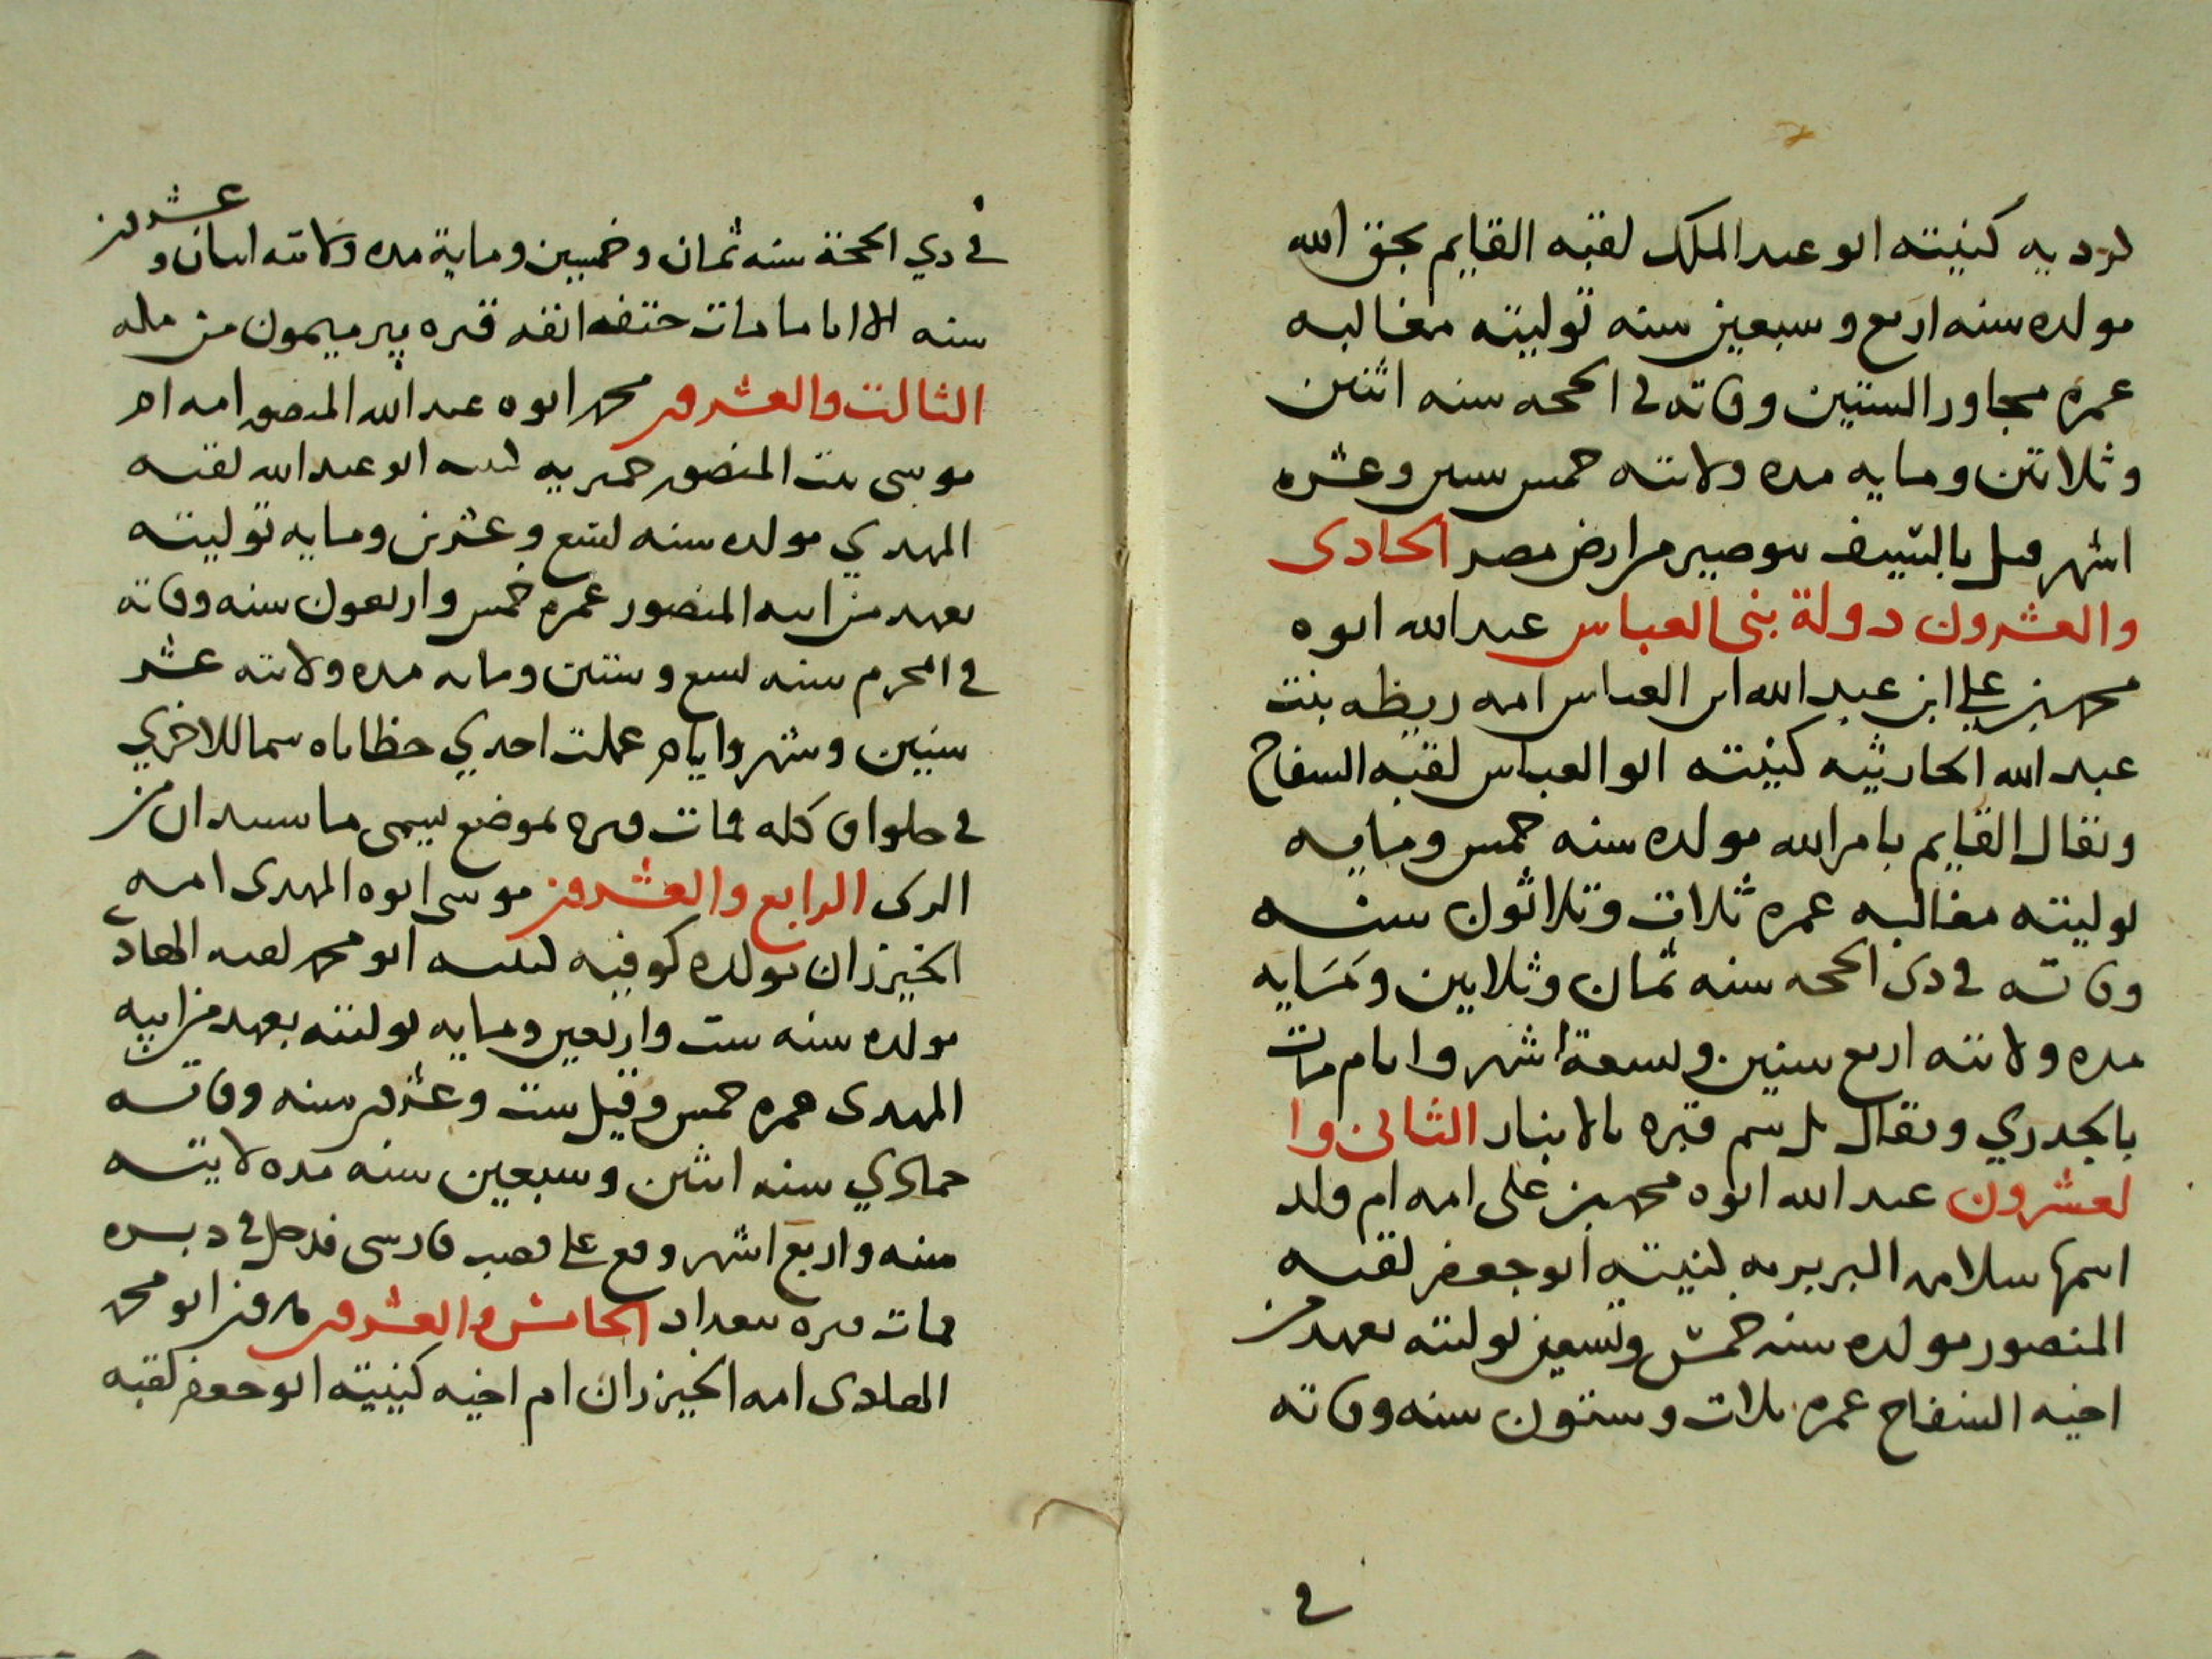 كرديه كنيته ابو عبد الملك لقبه القايم بحق الله
مولده سنه اربع وسبعين سنه توليته مغالبه
عمره مجاور الستين وفاته في الححه سنه اثنتين
وثلاثين ومايه مده ولاتته خمس سنين وعشره
اشهر قتل بالسيف ببوصير من ارض مصر الحادى
والعشرون دولة بنى العباس عبد الله ابوه
محمد بن علي ابن عبد الله ابن العباس امه ريطه بنت
عبد الله الحارثيه كنيته ابو العباس لقبه السفاح
ويقال القايم بامر الله مولده سنه خمس ومايه
توليته مغالبه عمره ثلاث وثلاثون سنه
وفاته في ذى الححه سنه ثمان وثلاثين ومايه
مده ولاتته اربع سنين وتسعة اشهر وايام مات
بالجدري ويقال بل سم قبره بالانبار الثانى وا
لعشرون عبد الله ابوه محمد بن على امه ام ولد
اسمها سلامه البربريه كنيته ابو جعفر لقبه
المنصور مولده سنه خمس وتسعين توليته بعهد من
اخيه السفاح عمره ثلاث وستون سنه وفاته
في
في ذي الححة سنه ثمان وخمسين وماية مده ولاتته اثنان وعشرون
سنه الا اياما مات حتف انفه قبره ببير ميمون من مكه
الثالث والعشرون محمد ابوه عبد الله المنصور امه ام
موسى بنت المنصور حميريه كنيته ابو عبد الله لقبه
المهدي مولده سنه تسع وعشرين ومايه توليته
بعهد من ابيه المنصور عمره خمس واربعون سنه وفاته
في المحرم سنه تسع وستين ومايه مده ولاتته عشر
سنين وشهر وايام عملت احدي حظاياه سما للاخري
في حلوا فاكله فمات قبره بموضع يسمى ماسبدان من
الرى الرابع والعشرون موسى ابوه المهدى امه
الخيزران مولده كوفيه كنيته ابو محمد لقبه الهادى
مولده سنه ست واربعين ومايه توليته بعهد من ابيه
المهدى عمره خمس وقيل ست وعشرون سنه وفاته
جمادي سنه اثنين وسبعين سنه مده لايته
سنه واربع اشهر وقع على قصب فارسى فدخل في دبره
فمات قبره ببغداد الخامس والعشرون هرون ابو محمد
المهدى امه الخيزران ام اخيه كنيته ابو جعفر لقبه